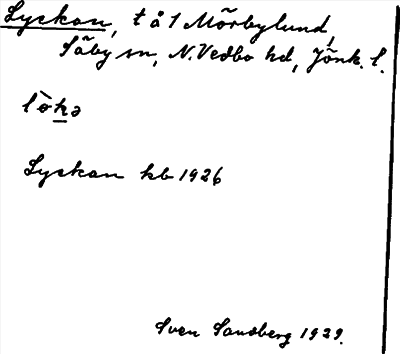 Lyckan, t å 1 Mörbylund,
Säby sn, N. Vedbo hd, Jönk. l.
lò̀kə
Lyckan kb 1926
Sven Sandberg 1929.